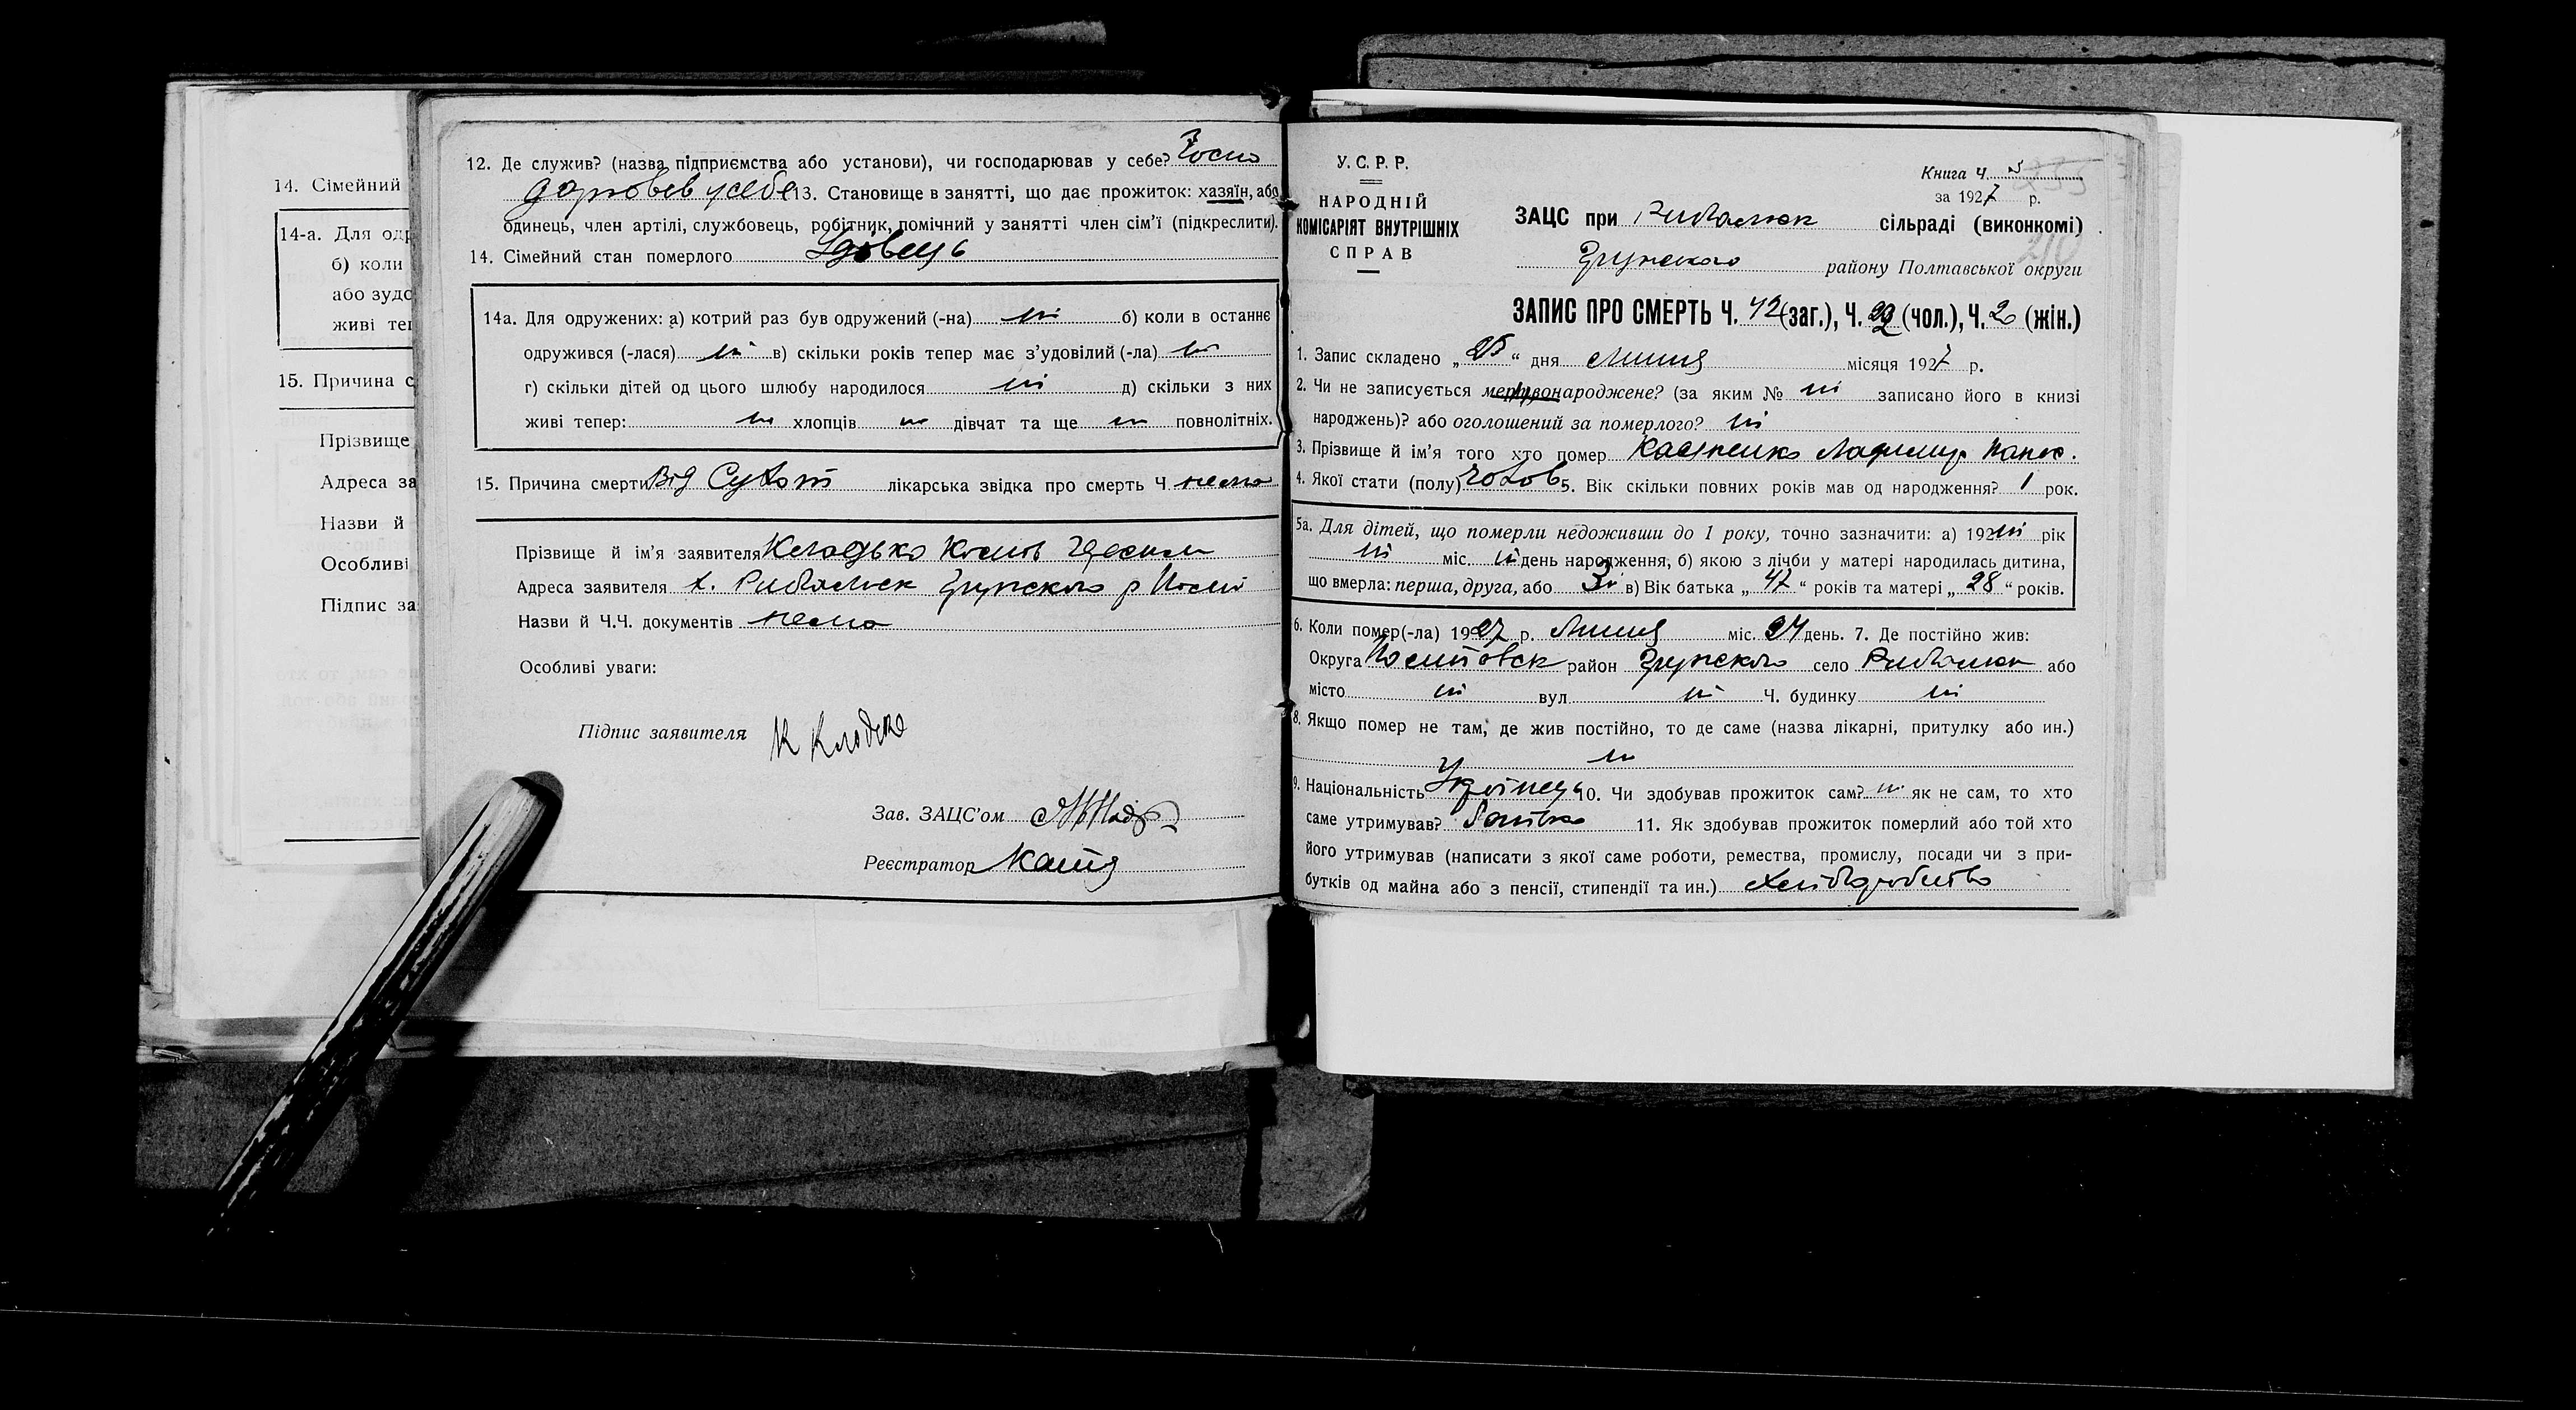 14. Сімейний
14-а. Для одр
б) коли
або зудо
живі теп
15. Причина с
Прізвище
Адреса за
Назви й
Особливі
Підпис за
12. Де служив? (назва підприємства або установи), чи господарював у себе? Госпо
дарював у себе 13. Становище в занятті, що дає прожиток: хазяїн, або
одинець, член артілі, службовець, робітник, помічний у занятті член сім'ї (підкреслити).
14. Сімейний стан померлого Удівець
14а. Для одружених: а) котрий раз був одружений (-на) ні б) коли в останнє
одружився (-лася) ні в) скільки років тепер має з'удовілий (-ла) ні
г) скільки дітей од цього шлюбу народилося ні д) скільки з них
живі тепер: ні хлопців ні дівчат та ще ні повнолітніх.
15. Причина смерти Від лікарська звідка про смерть Ч. нема
Прізвище й ім'я заявителя Кладько
Адреса заявителя х. Рибальск Грунского р Полт
Назви й Ч.Ч. документів нема
Особливі уваги:
Підпис заявителя К Кладько
Зав. ЗАЦС'ом
Реєстратор
У. С. Р. Р.
НАРОДНІЙ
КОМІСАРІЯТ ВНУТРІШНІХ
СПРАВ
Книга Ч. 5
за 1927 р.
ЗАЦС при Рибальск сільраді (виконкомі)
Грунского району Полтавської округи
210
ЗАПИС ПРО СМЕРТЬ Ч. 42 (заг.), Ч. 22 (чол.), Ч. 20 (жін.)
1. Запис складено „25“ дня Липня місяця 1927 р.
2. Чи не записується мертвонароджене? (за яким № ні записано його в книзі
народжень)? або оголошений за померлого? ні
3. Прізвище й ім'я того хто помер
4. Якої стати (полу) Чолов 5. Вік скільки повних років мав од народження? 1 рок.
5а. Для дітей, що померли недоживши до 1 року, точно зазначити: а) 192 ні рік
ні міс. ні день народження, б) якою з лічби у матері народилась дитина,
що вмерла: перша, друга, або 3й в) Вік батька „47“ років та матері „28“ років.
6. Коли помер(-ла) 1927 р. Липня міс. 24 день. 7. Де постійно жив:
Округа Полтавск район Грунского село Рибальск або
місто ні вул ні Ч. будинку ні
8. Якщо помер не там, де жив постійно, то де саме (назва лікарні, притулку або ин.)
ні
9. Національність Українець 10. Чи здобував прожиток сам? ні як не сам, то хто
саме утримував? Батько 11. Як здобував прожиток померлий або той хто
його утримував (написати з якої саме роботи, ремества, промислу, посади чи з при-
бутків од майна або з пенсії, стипендії та ин.) Хліборобство